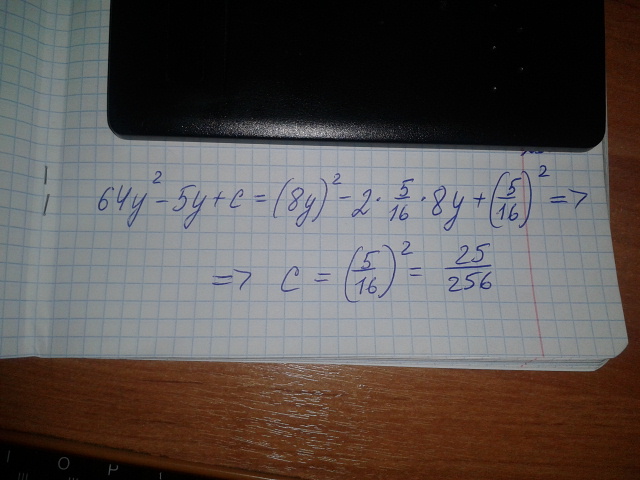 64y² - 5y + c = (8y)² - 2 · 5/16 · 8y + (5/16)² =>
=> c = (5/16)² = 25/256